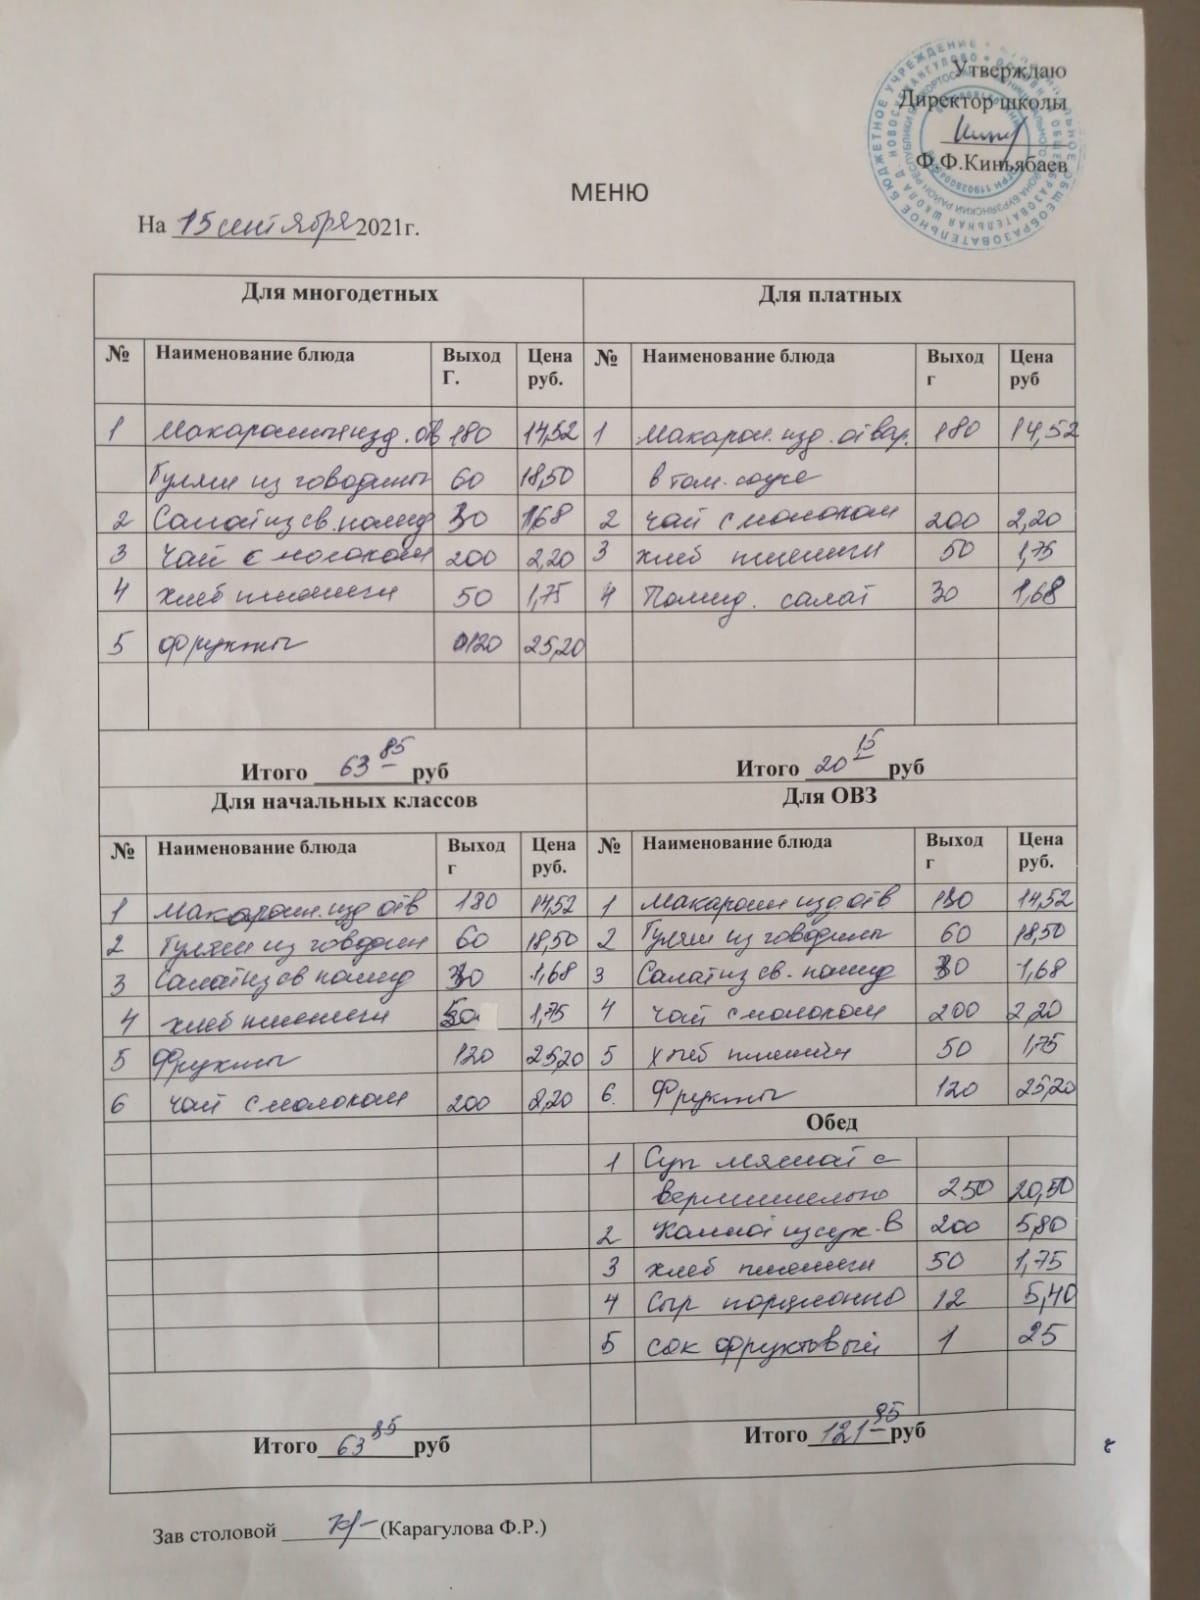 Утверждаю
Директор школы
Ф.Ф.Киньябаев
МЕНЮ
На 15 сентября 2021г.
Для многодетных Для платных
№ Наименование блюда Выход Г. Цена руб. № Наименование блюда Выход г Цена руб
1 Макаронн изд. отв 180 14,52 1 Макарон. изд. отвар. 180 14,52
Гуляш из говядины 60 18,50 в том. соусе
2 Салат из св. помид 30 1,68 2 чай с молоком 200 2,20
3 чай с молоком 200 2,20 3 хлеб пшеничн 50 1,75
4 хлеб пшеничн 50 1,75 4 Помид. салат 30 1,68
5 фрукты 120 25,20
Итого 63 85 руб Итого 20 15 руб
Для начальных классов Для ОВЗ
№ Наименование блюда Выход г Цена руб. № Наименование блюда Выход г Цена руб.
1 Макарон. изд отв 180 14,52 1 Макарон изд отв 180 14,52
2 Гуляш из говядин 60 18,50 2 Гуляш из говядины 60 18,50
3 Салат из св помид 30 1,68 3 Салат из св. помид 30 1,68
4 хлеб пшеничн 50 1,75 4 чай с молоком 200 2,20
5 Фрукты 120 25,20 5 хлеб пшеничн 50 1,75
6 чай с молоком 200 2,20 6. Фрукты 120 25,20
Обед
1 Суп мясной с
вермишелью 250 20,50
2 Компот из сух. 200 5,80
3 хлеб пшеничн 50 1,75
4 Сыр порционно 12 5,40
5 сок фруктовый 1 25
Итого 63 85 руб Итого 121 95 руб
Зав столовой (Карагулова Ф.Р.)